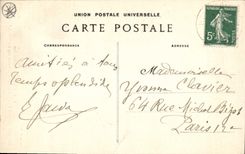 UNION POSTALE UNIVERSELLE
CARTE POSTALE
CORRESPONDANCE
ADRESSE
Amitiés à tous
Temps splendide
Mademoiselle
Yvonne Clavier
64 Rue Michel Bizot
Paris 12e